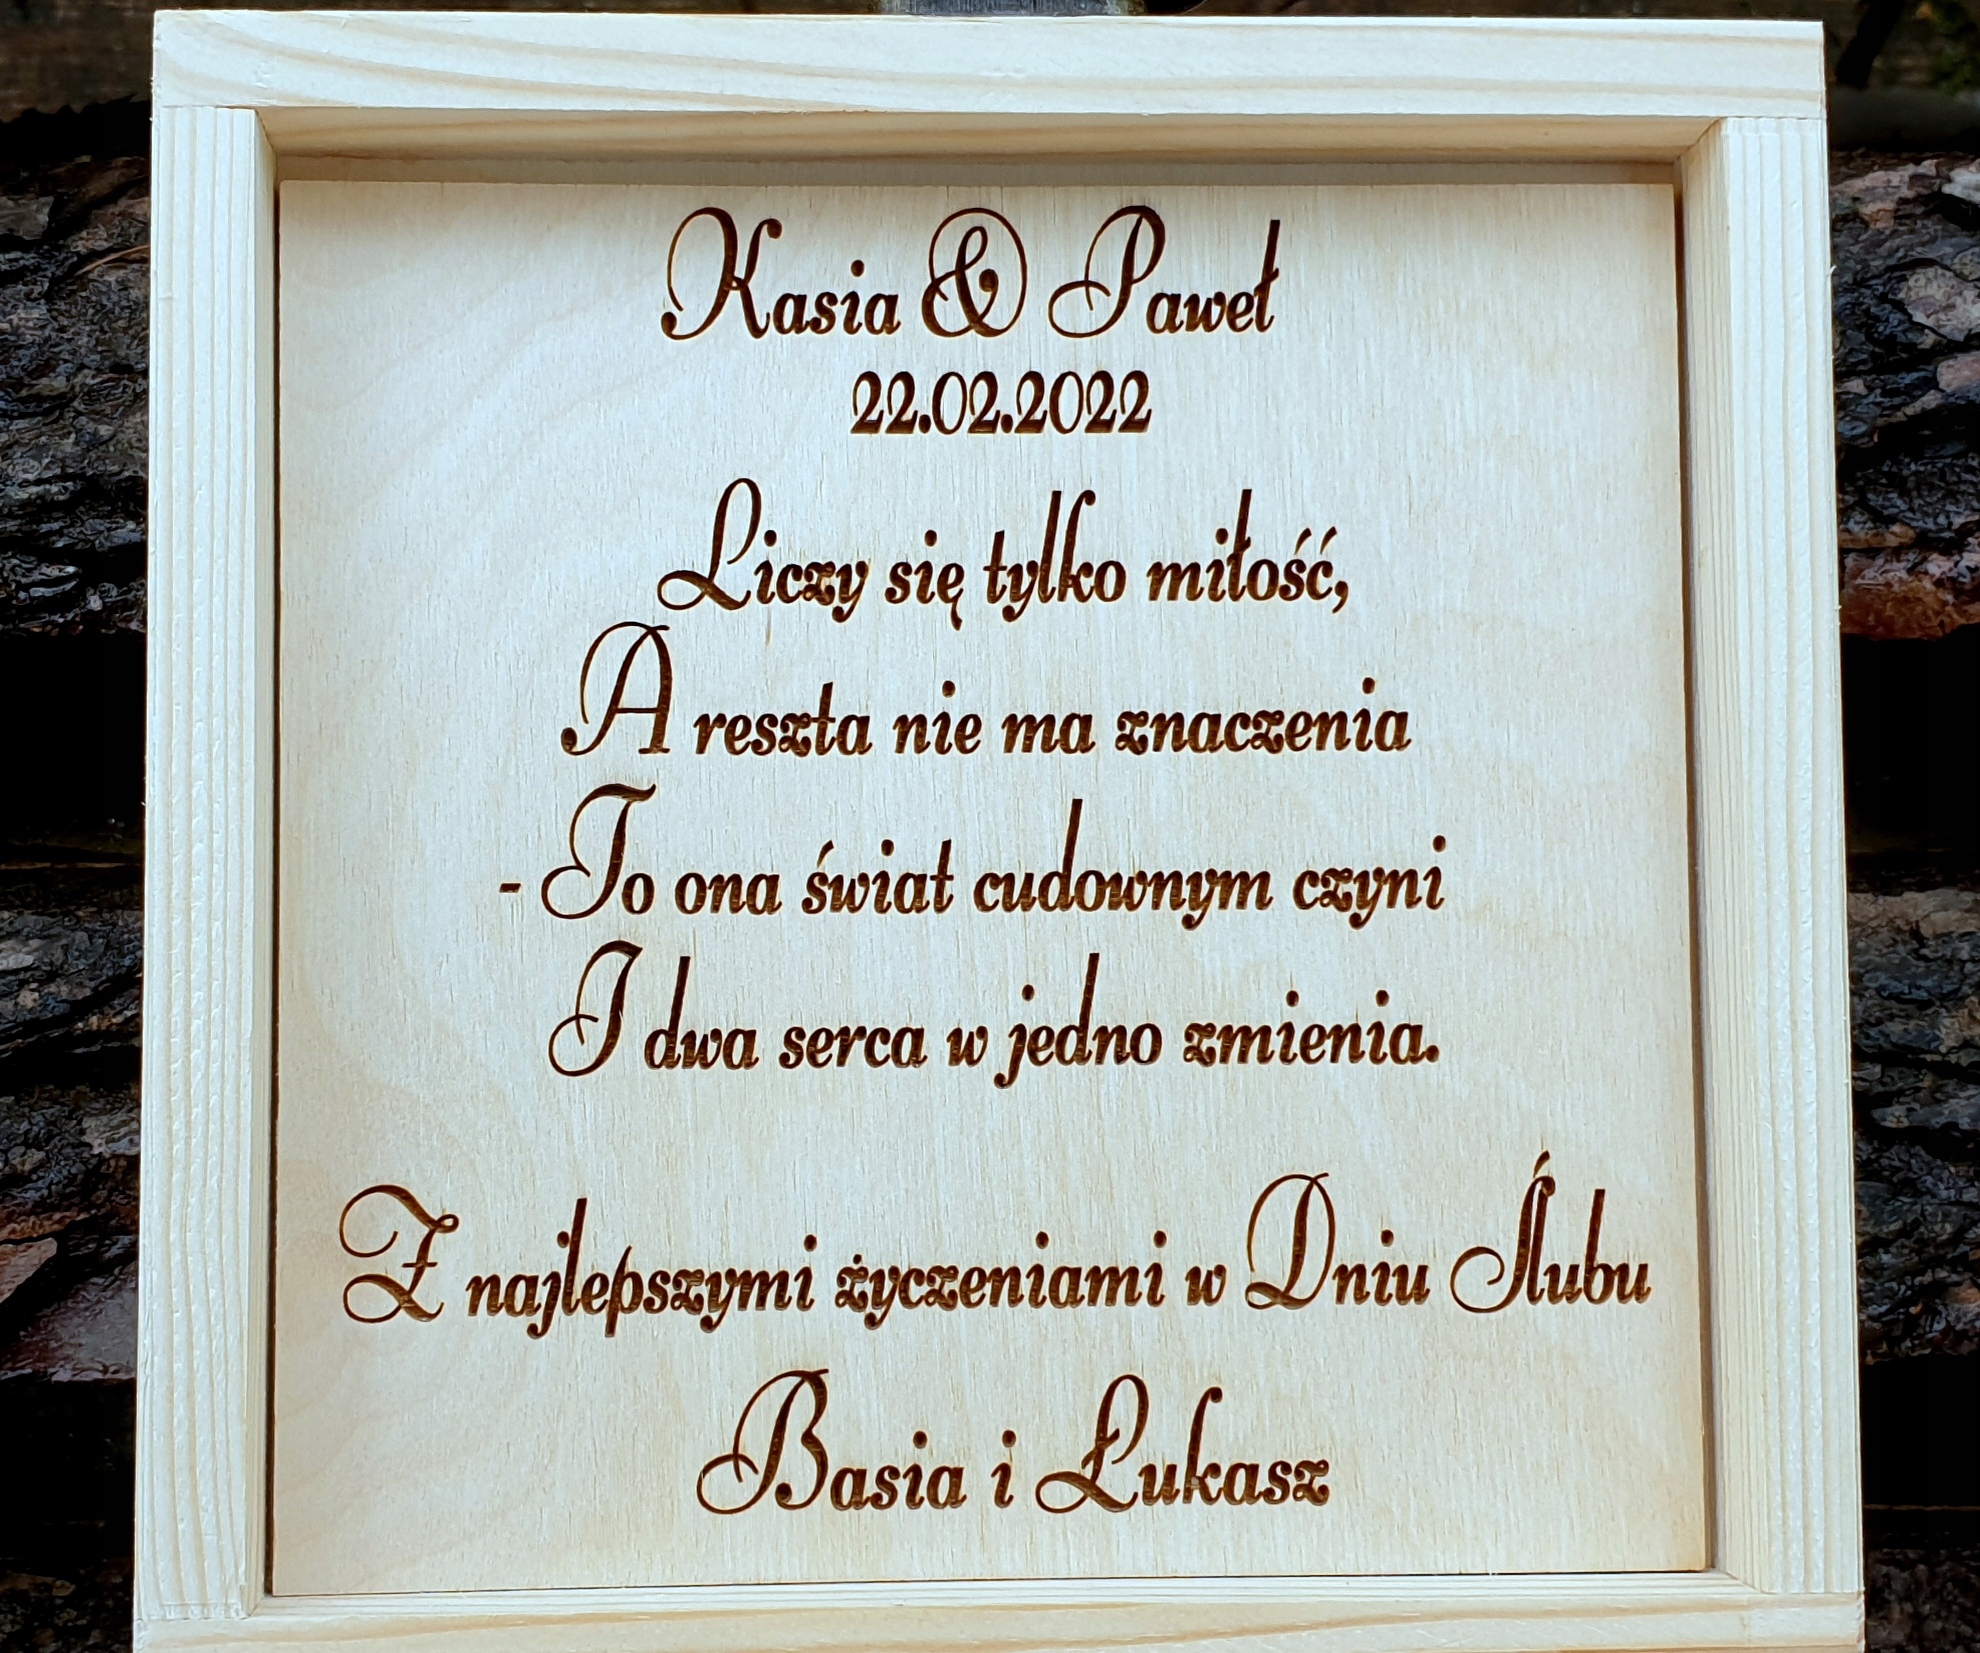 Kasia & Paweł
22.02.2022
Liczy się tylko miłość,
A reszta nie ma znaczenia
- To ona świat cudownym czyni
I dwa serca w jedno zmienia.
Z najlepszymi życzeniami w Dniu Ślubu
Basia i Łukasz